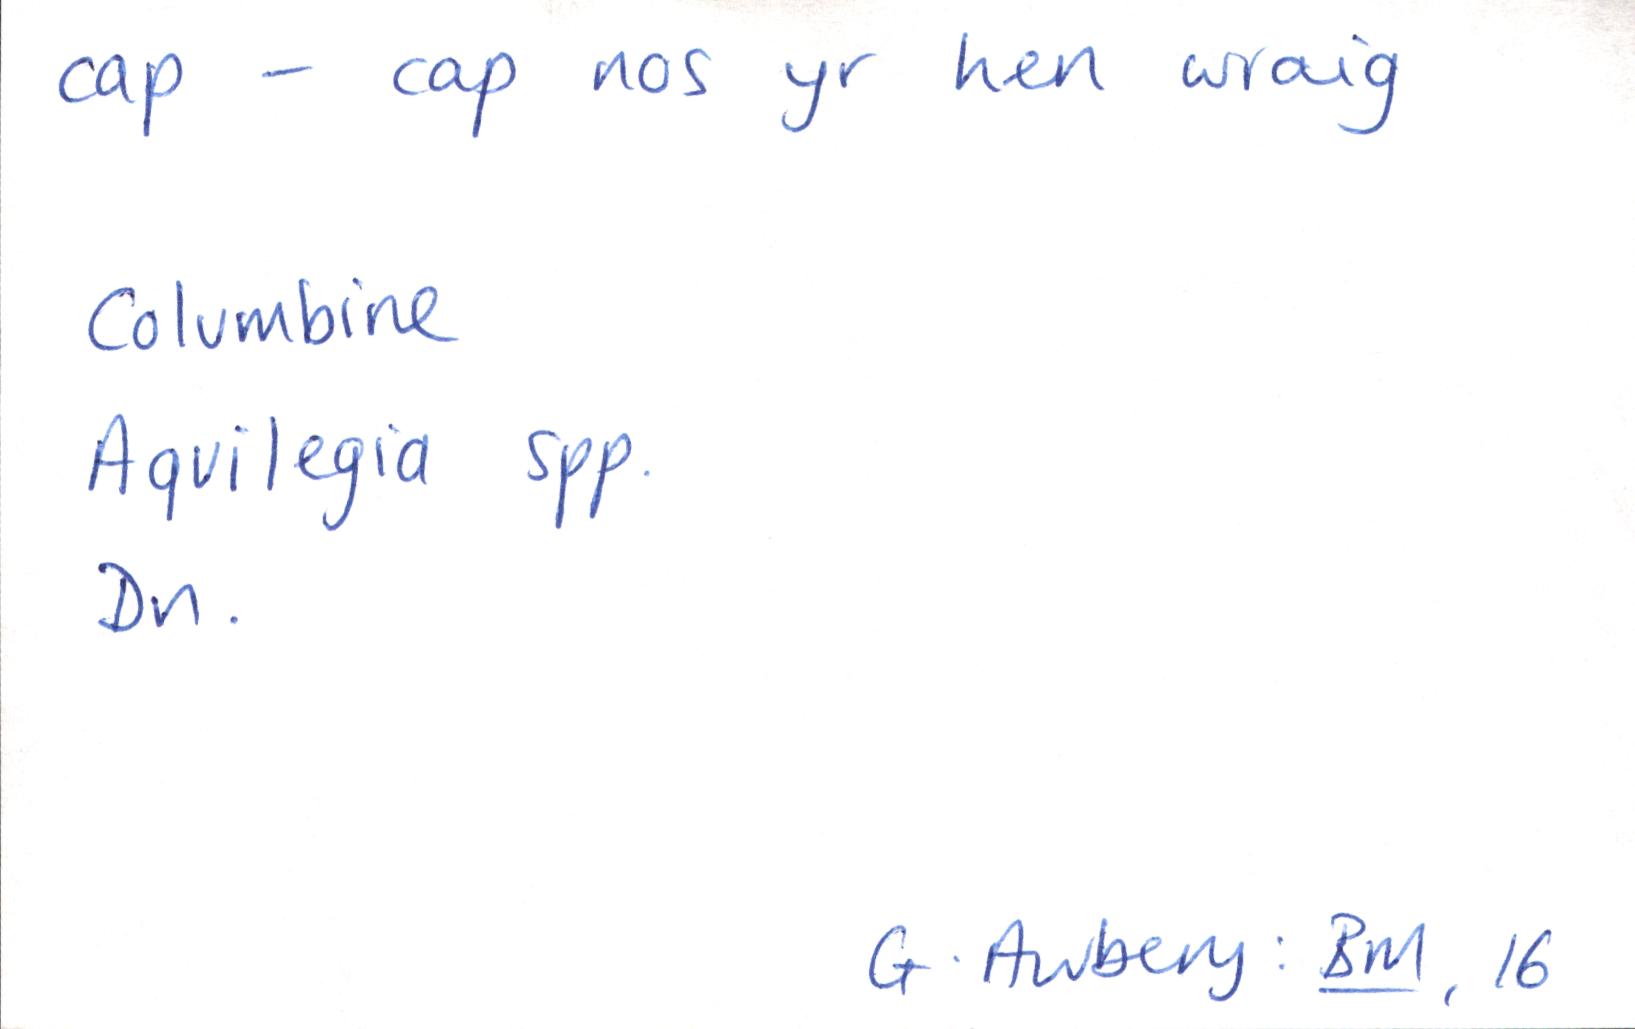 cap - cap nos yr hen wraig
Columbine
Aquilegia spp.
Dn.
G. Awbery: BM, 16